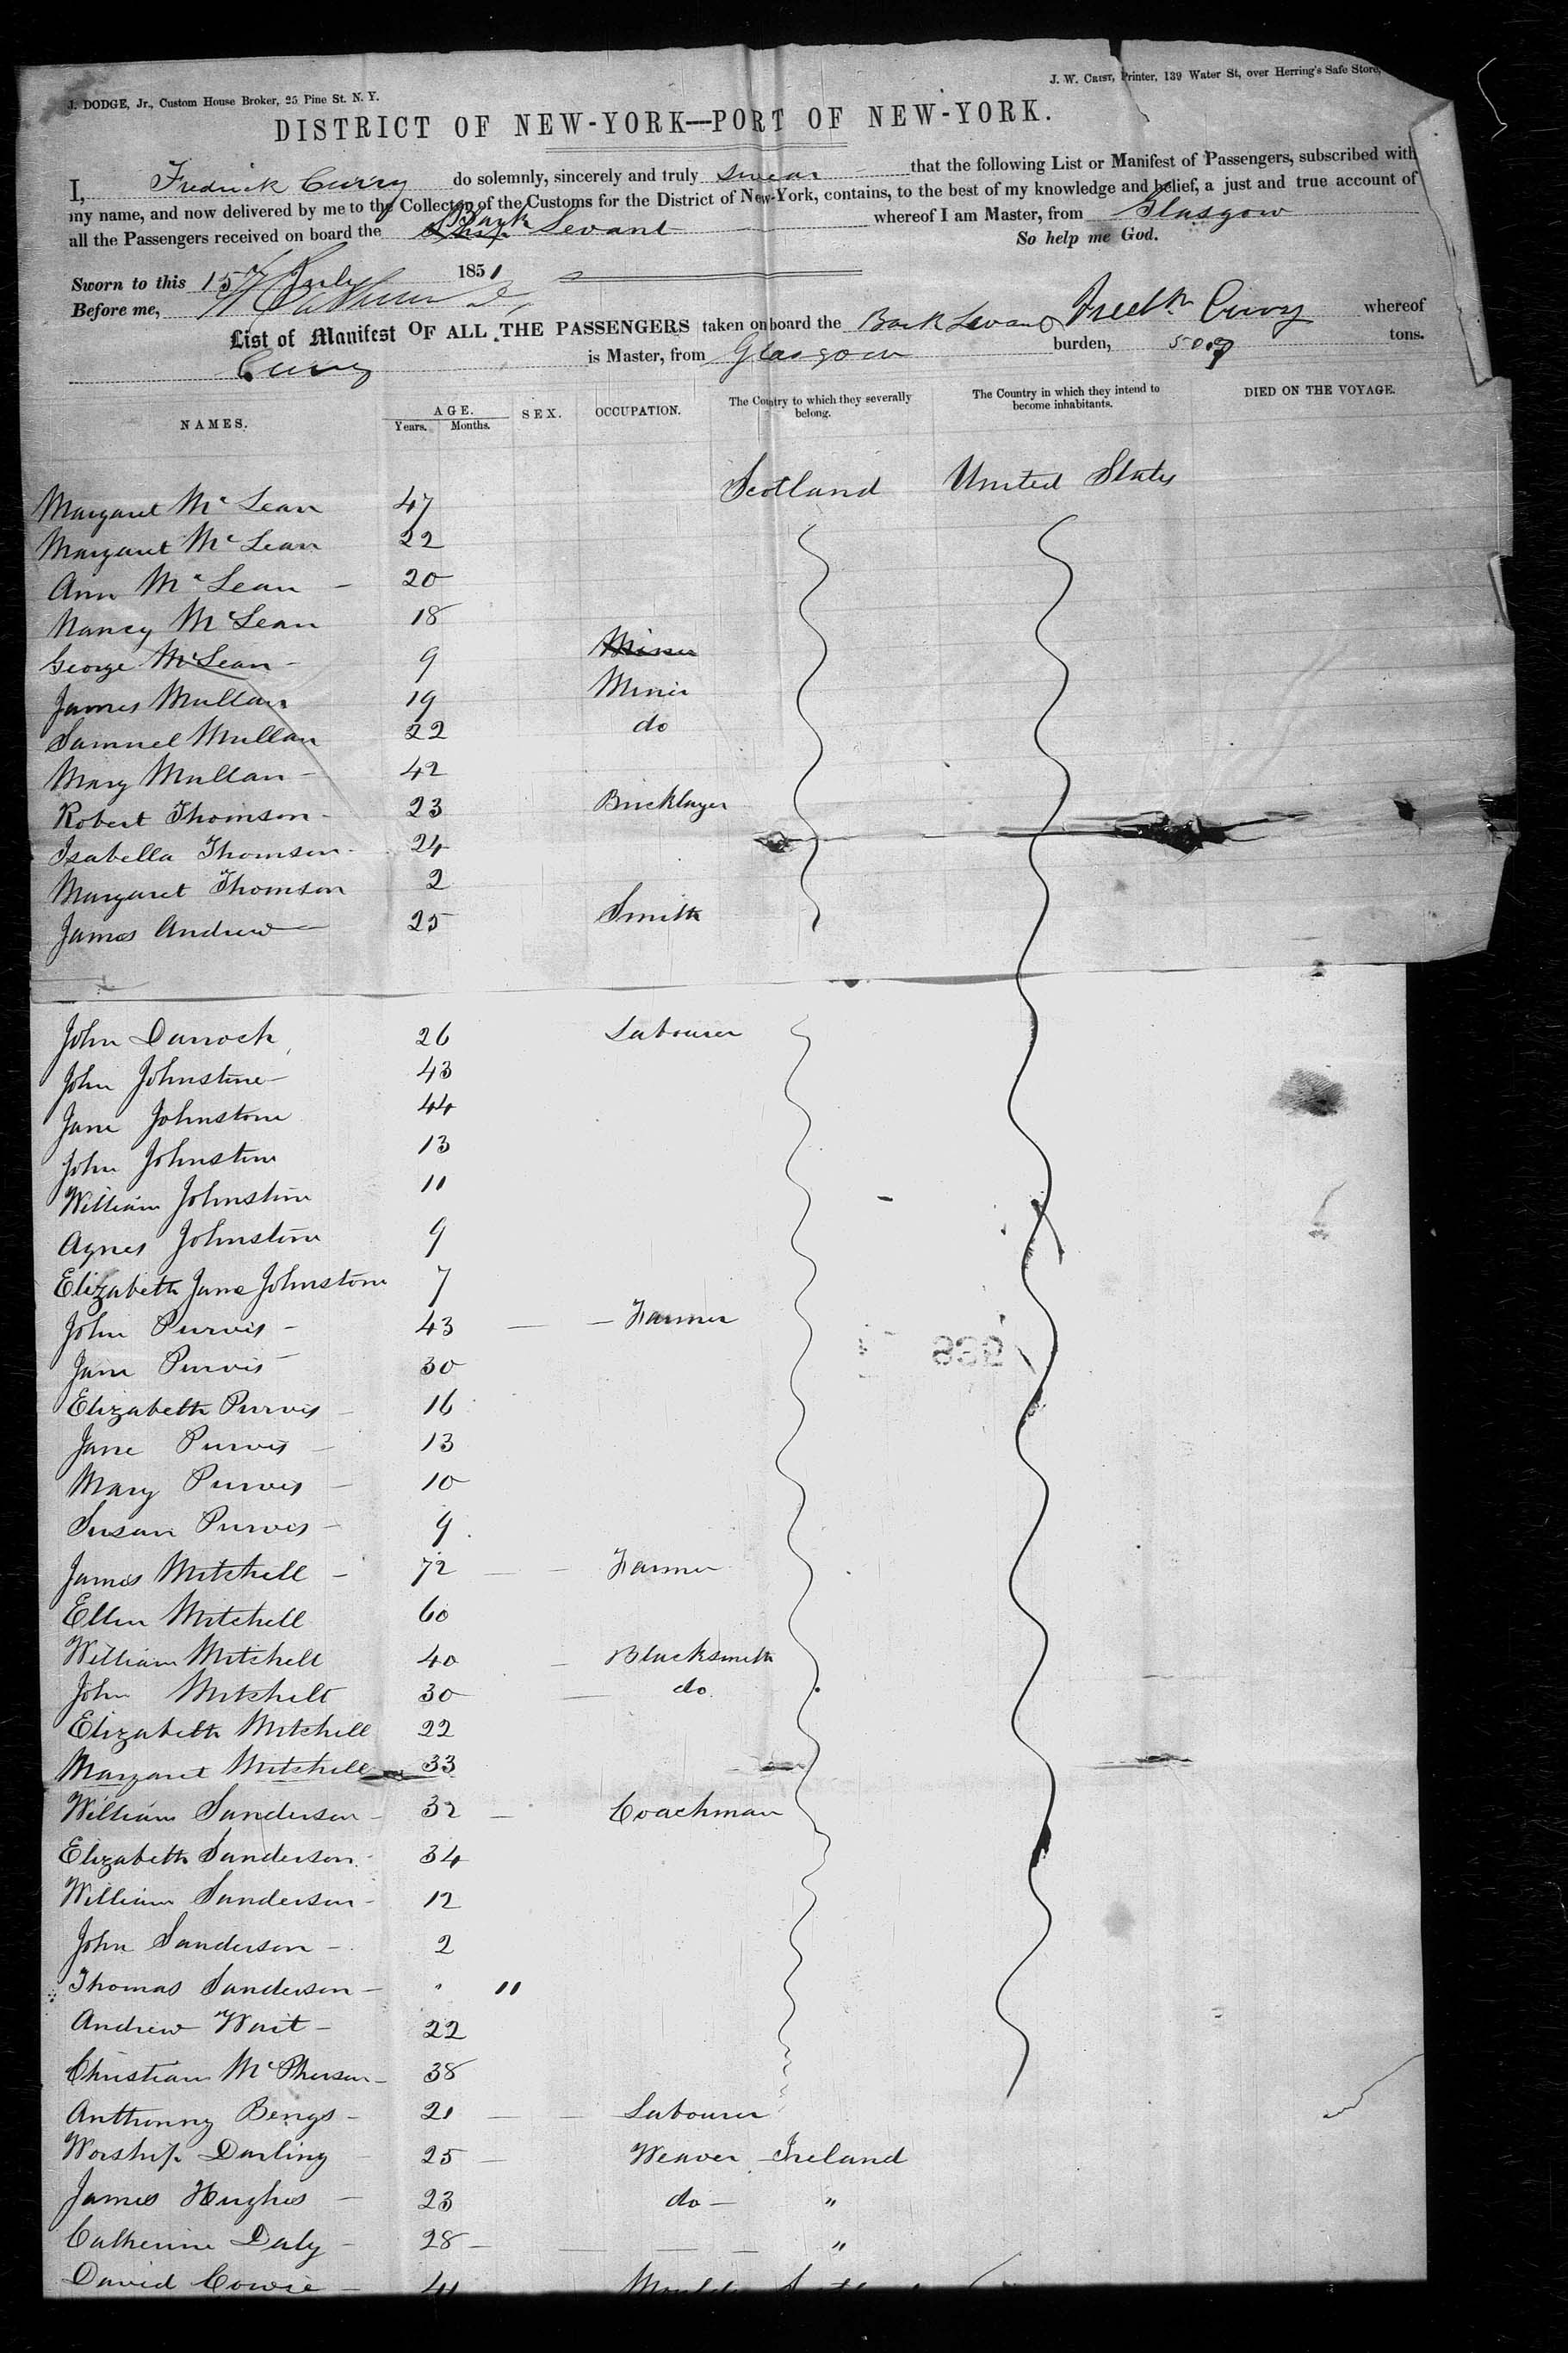 J. DODGE, Jr., Custom House Broker, 25 Pine St. N. Y.
J. W. CRIST, Printer, 139 Water St, over Herring's Safe Store,
DISTRICT OF NEW-YORK—PORT OF NEW-YORK.
I, Fredrick Curry do solemnly, sincerely and truly swear that the following List or Manifest of Passengers, subscribed with
my name, and now delivered by me to the Collector of the Customs for the District of New-York, contains, to the best of my knowledge and belief, a just and true account of
all the Passengers received on board the Ship Bark Levant whereof I am Master, from Glasgow
So help me God.
Sworn to this 15 July 1851
Before me,
Fredk Curry
List of Manifest OF ALL THE PASSENGERS taken on board the Bark Levant whereof
Curry is Master, from Glasgow burden, 509 tons.
NAMES. AGE. Years. Months. SEX. OCCUPATION. The Country to which they severally belong. The Country in which they intend to become inhabitants. DIED ON THE VOYAGE.
Margaret McLean 47 Scotland United States
Margaret McLean 22
Ann McLean 20
Nancy McLean 18
George McLean 9 Miner
James Mullan 19 Miner
Samuel Mullan 22 do
Mary Mullan 42
Robert Thomson 23 Bricklayer
Isabella Thomson 24
Margaret Thomson 2
James Andrew 25 Smith
John Darroch 26 Labourer
John Johnstone 43
Jane Johnstone 44
John Johnstone 13
William Johnstone 11
Agnes Johnstone 9
Elizabeth Jane Johnstone 7
John Purvis 43 Farmer
Jane Purvis 30
Elizabeth Purvis 16
Jane Purvis 13
Mary Purvis 10
Susan Purvis 9
James Mitchell 72 Farmer
Ellen Mitchell 60
William Mitchell 40 Blacksmith
John Mitchell 30 do
Elizabeth Mitchell 22
Margaret Mitchell 33
William Sanderson 32 Coachman
Elizabeth Sanderson 34
William Sanderson 12
John Sanderson 2
Thomas Sanderson 11
Andrew Wait 22
Christian McPherson 38
Anthonny Bengs 21 Labourer
Worship Darling 25 Weaver Ireland
James Hughes 23 do "
Catherine Daly 28 "
David Cowie 41